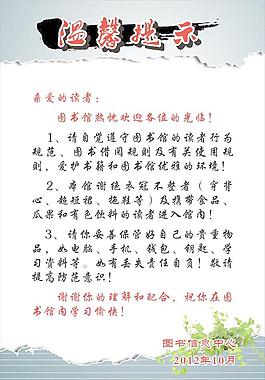 温馨提示
亲爱的读者：
图书馆热忱欢迎各位的光临！
1、请自觉遵守图书馆的读者行为
规范、图书借阅规则及有关使用规
则，爱护书籍和图书馆优雅的环境！
2、本馆谢绝衣冠不整者（穿背
心、超短裙、拖鞋等）及携带食品、
瓜果和有色饮料的读者进入馆内！
3、请你妥善保管好自己的贵重物
品，如电脑、手机、钱包、钥匙、学
习资料等。如有丢失责任自负！敬请
提高防范意识！
谢谢你的理解和配合，祝你在图
书馆内学习愉快！
图书信息中心
2012年10月